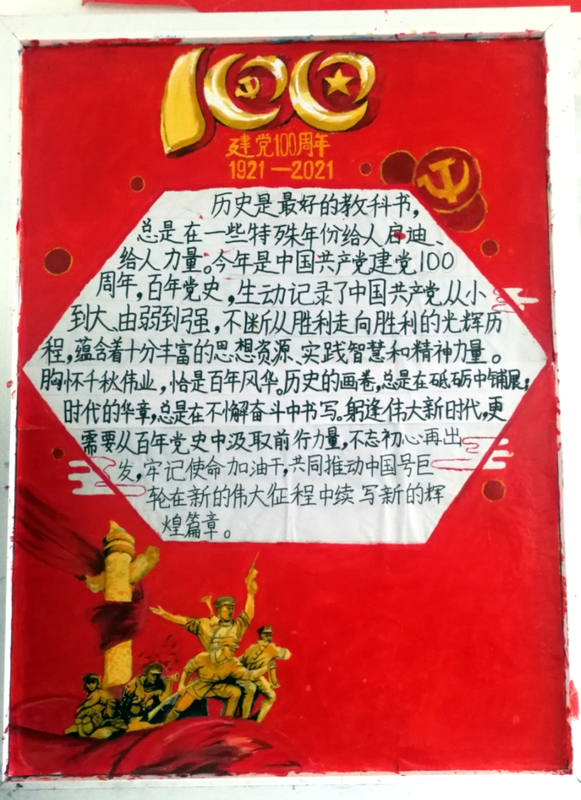 100
建党100周年
1921—2021
历史是最好的教科书，
总是在一些特殊年份给人启迪、
给人力量。今年是中国共产党建党100
周年，百年党史，生动记录了中国共产党从小
到大、由弱到强，不断从胜利走向胜利的光辉历
程，蕴含着十分丰富的思想资源、实践智慧和精神力量。
胸怀千秋伟业，恰是百年风华。历史的画卷，总是在砥砺中铺展；
时代的华章，总是在不懈奋斗中书写。躬逢伟大新时代，更
需要从百年党史中汲取前行力量，不忘初心再出
发，牢记使命加油干，共同推动中国号巨
轮在新的伟大征程中续写新的辉
煌篇章。